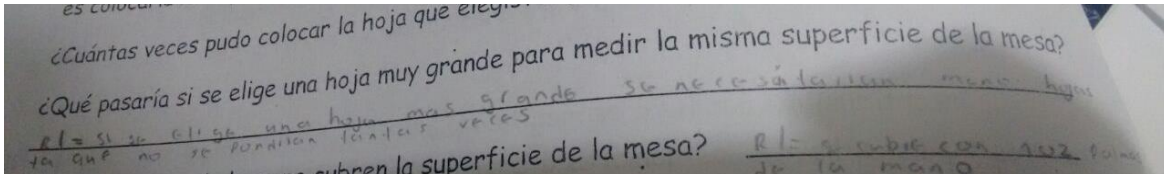 es coloca
¿Cuántas veces pudo colocar la hoja que elegi
¿Qué pasaría si se elige una hoja muy grande para medir la misma superficie de la mesa?
R/= si se elige una hoja mas grande se necesitarian menos hojas
ya que no se pondrian tantas veces
cubren la superficie de la mesa? R/= se cubre con 102 palmas
de la mano